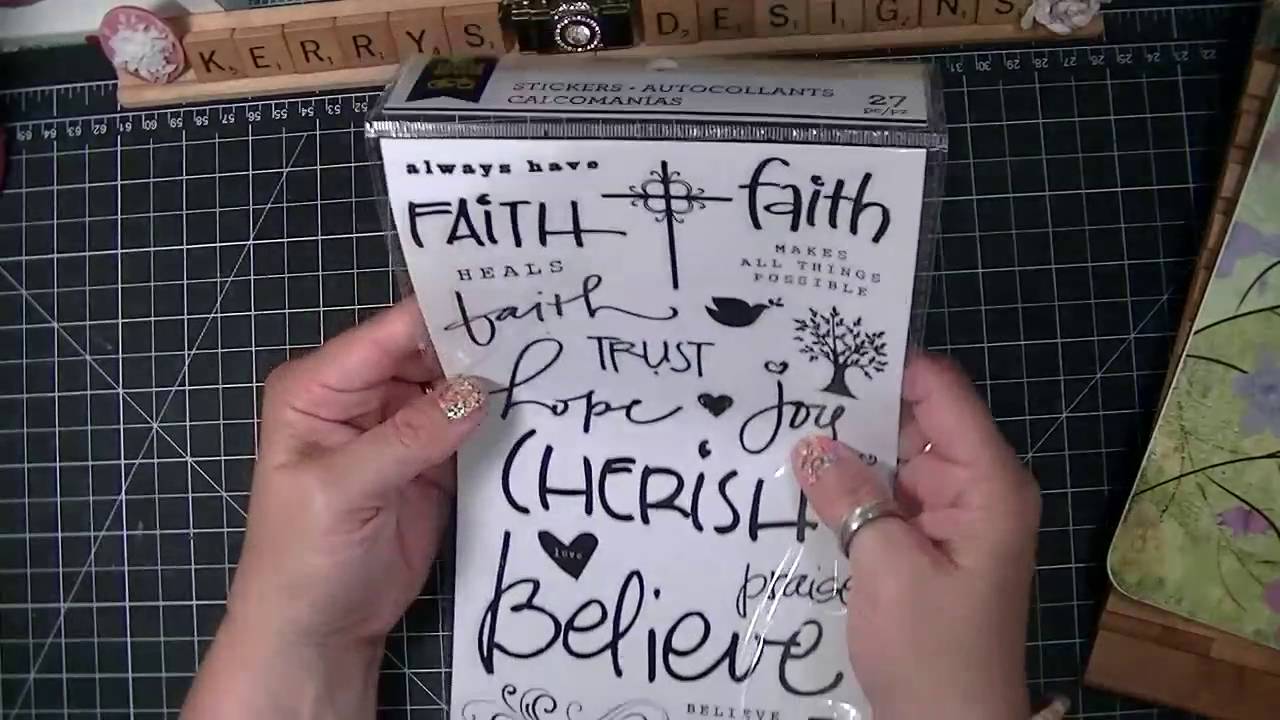 KERRYS DESIGNS
STICKERS • AUTOCOLLANTS
CALCOMANÍAS
27
pc/pz
always have
FAiTH
faith
HEALS
MAKES
ALL THINGS
POSSIBLE
faith
TRUST
hope
joy
CHERiSH
love
praise
Believe
BELIEVE